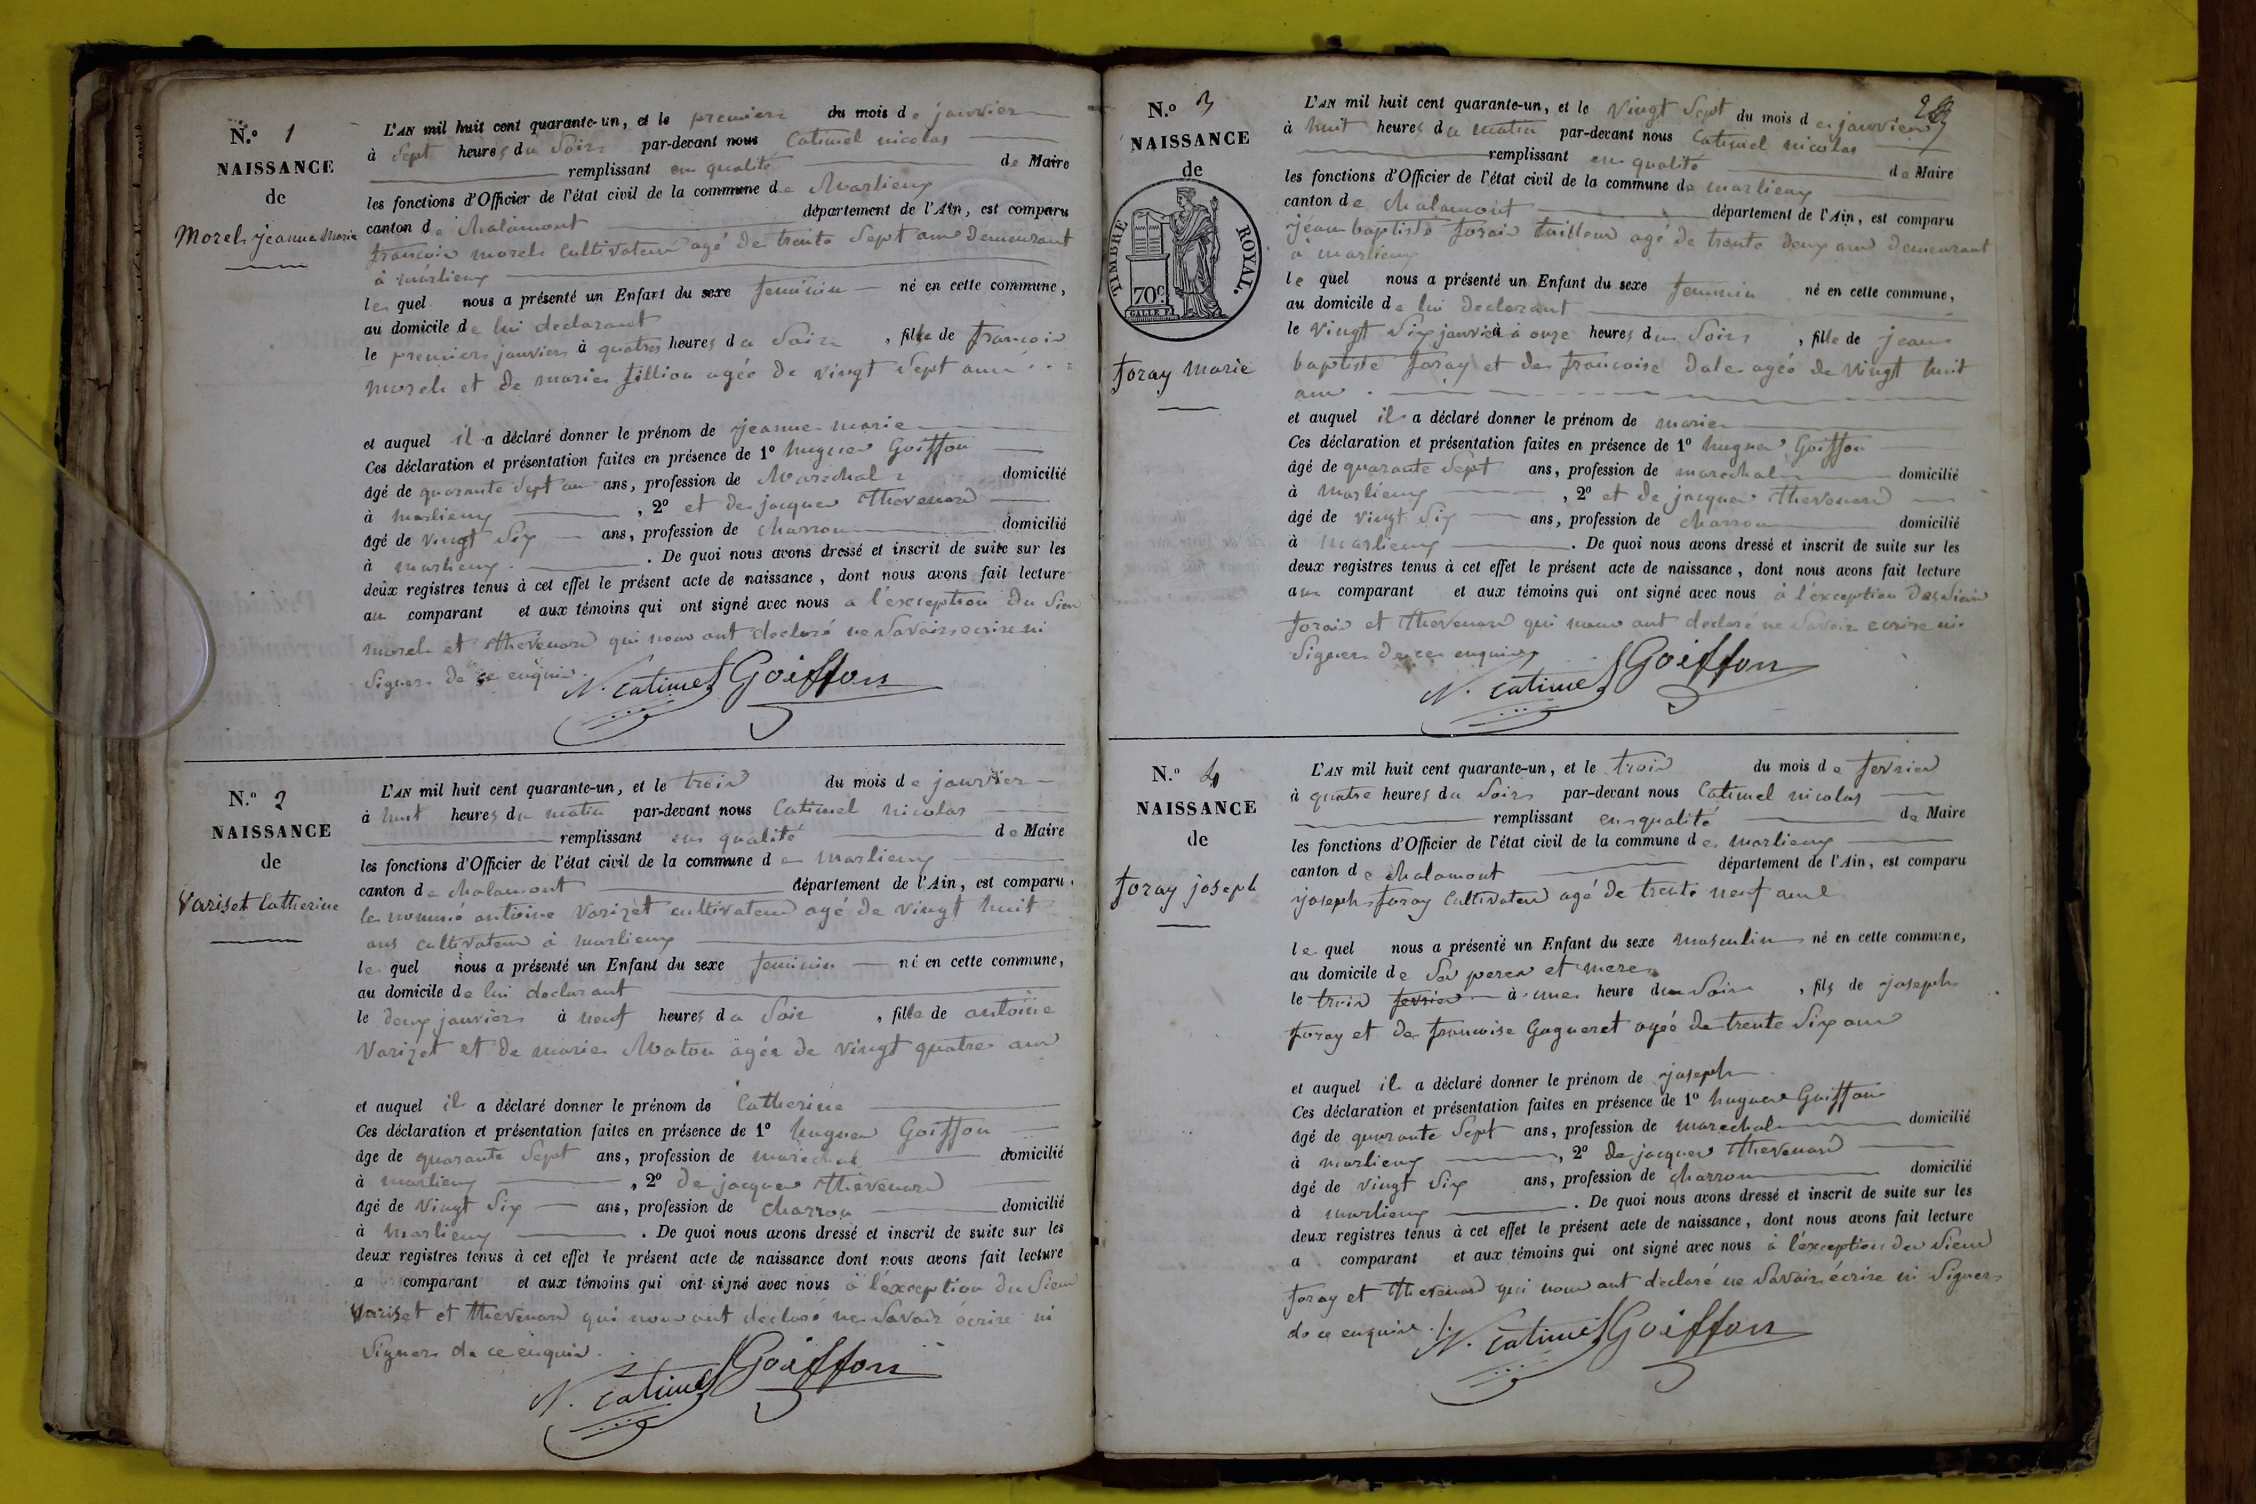 N.o 1
NAISSANCE
de
Morel jeanne Marie
L'AN mil huit cent quarante-un, et le premier du mois de janvier
à Sept heures du Soir par-devant nous Catimel nicolas
remplissant en qualité de Maire
les fonctions d'Officier de l'état civil de la commune de Marlieux
canton de Chalamont département de l'Ain, est comparu
françois morel Cultivateur agé de trente Sept ans demeurant
à marlieux
le quel nous a présenté un Enfant du sexe feminin né en cette commune,
au domicile de lui declarant
le premier janvier à quatre heures du Soir, fille de françois
morel et de marie fillion agée de vingt Sept ans
et auquel il a déclaré donner le prénom de jeanne marie
Ces déclaration et présentation faites en présence de 1o hugues Goiffon
âgé de quarante Sept ans ans, profession de Marechal domicilié
à marlieux, 2o et de jacques thevenard
âgé de vingt Six ans, profession de charron domicilié
à marlieux. De quoi nous avons dressé et inscrit de suite sur les
deux registres tenus à cet effet le présent acte de naissance, dont nous avons fait lecture
au comparant et aux témoins qui ont signé avec nous a l'exception du Sieur
morel et thevenard qui nous ont declaré ne Savoir ecrire ni
Signer de ce enquis.
N. Catimel Goiffon
N.o 2
NAISSANCE
de
Variset Catherine
L'AN mil huit cent quarante-un, et le trois du mois de janvier
à huit heures du matin par-devant nous Catimel nicolas
remplissant en qualité de Maire
les fonctions d'Officier de l'état civil de la commune de marlieux
canton de chalamont département de l'Ain, est comparu
le nommé antoine Varizet cultivateur agé de vingt huit
ans cultivateur à marlieux
le quel nous a présenté un Enfant du sexe feminin né en cette commune,
au domicile de lui declarant
le deux janvier à neuf heures du Soir, fille de antoine
Varizet et de marie Maton agée de vingt quatre ans
et auquel il a déclaré donner le prénom de Catherine
Ces déclaration et présentation faites en présence de 1o hugues Goiffon
âge de quarante Sept ans, profession de marechal domicilié
à marlieux, 2o de jacques thevenard
âgé de Vingt Six ans, profession de charron domicilié
à Marlieux. De quoi nous avons dressé et inscrit de suite sur les
deux registres tenus à cet effet le présent acte de naissance dont nous avons fait lecture
a comparant et aux témoins qui ont signé avec nous à l'exception du Sieur
Variset et thevenard qui nous ont declaré ne Savoir écrire ni
Signer de ce enquis.
N. Catimel Goiffon
N.o 3
NAISSANCE
de
TIMBRE ROYAL.
70c.
foray marie
L'AN mil huit cent quarante-un, et le vingt Sept du mois de janvier
à huit heures du matin par-devant nous Catimel nicolas
remplissant en qualité de Maire
les fonctions d'Officier de l'état civil de la commune de marlieux
canton de chalamont département de l'Ain, est comparu
jean baptiste forai tailleur agé de trente deux ans demeurant
à marlieux
le quel nous a présenté un Enfant du sexe feminin né en cette commune,
au domicile de lui declarant
le vingt Six janvier à onze heures du Soir, fille de jean
baptiste foray et de francoise Dale agée de vingt huit
ans
et auquel il a déclaré donner le prénom de marie
Ces déclaration et présentation faites en présence de 1o hugues Goiffon
âgé de quarante Sept ans, profession de marechal domicilié
à marlieux, 2o et de jacques thevenard
âgé de vingt Six ans, profession de charron domicilié
à marlieux. De quoi nous avons dressé et inscrit de suite sur les
deux registres tenus à cet effet le présent acte de naissance, dont nous avons fait lecture
au comparant et aux témoins qui ont signé avec nous à l'exception des Sieur
forai et thevenard qui nous ont declaré ne Savoir ecrire ni
Signer de ce enquis
N. Catimel Goiffon
N.o 4
NAISSANCE
de
foray joseph
L'AN mil huit cent quarante-un, et le trois du mois de fevrier
à quatre heures du Soir par-devant nous Catimel nicolas
remplissant en qualité de Maire
les fonctions d'Officier de l'état civil de la commune de marlieux
canton de chalamont département de l'Ain, est comparu
joseph foray Cultivateur agé de trente neuf ans
le quel nous a présenté un Enfant du sexe masculin né en cette commune,
au domicile de Ses peres et meres
le trois fevrier à une heure du Soir, fils de joseph
foray et de francoise Gagneret agée de trente Six ans
et auquel il a déclaré donner le prénom de joseph
Ces déclaration et présentation faites en présence de 1o hugues Goiffon
âgé de quarante Sept ans, profession de marechal domicilié
à marlieux, 2o de jacques thevenard
âgé de vingt Six ans, profession de charron domicilié
à marlieux. De quoi nous avons dressé et inscrit de suite sur les
deux registres tenus à cet effet le présent acte de naissance, dont nous avons fait lecture
a comparant et aux témoins qui ont signé avec nous à l'exception des Sieur
foray et thevenard qui nous ont declaré ne Savoir écrire ni Signer
de ce enquis ./.
N. Catimel Goiffon